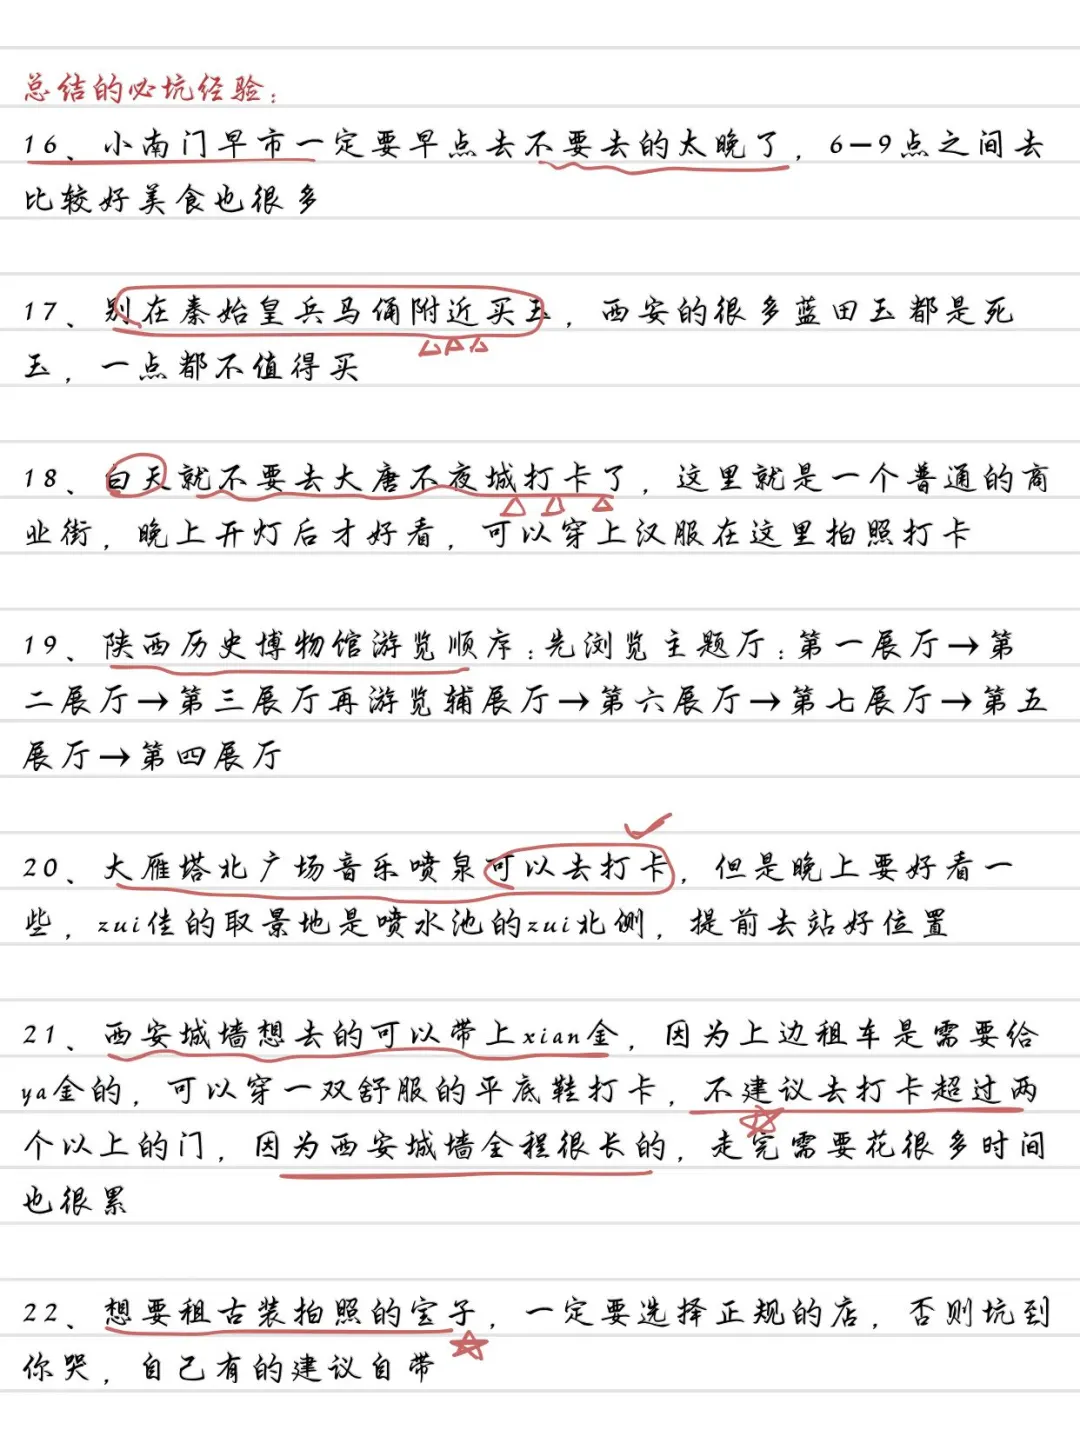 总结的必坑经验：
16、小南门早市一定要早点去不要去的太晚了，6-9点之间去
比较好美食也很多
17、别在秦始皇兵马俑附近买玉，西安的很多蓝田玉都是死
玉，一点都不值得买
18、白天就不要去大唐不夜城打卡了，这里就是一个普通的商
业街，晚上开灯后才好看，可以穿上汉服在这里拍照打卡
19、陕西历史博物馆游览顺序：先浏览主题厅：第一展厅→第
二展厅→第三展厅再游览辅展厅→第六展厅→第七展厅→第五
展厅→第四展厅
20、大雁塔北广场音乐喷泉可以去打卡，但是晚上要好看一
些，zui佳的取景地是喷水池的zui北侧，提前去站好位置
21、西安城墙想去的可以带上xian金，因为上边租车是需要给
ya金的，可以穿一双舒服的平底鞋打卡，不建议去打卡超过两
个以上的门，因为西安城墙全程很长的，走完需要花很多时间
也很累
22、想要租古装拍照的宝子，一定要选择正规的店，否则坑到
你哭，自己有的建议自带